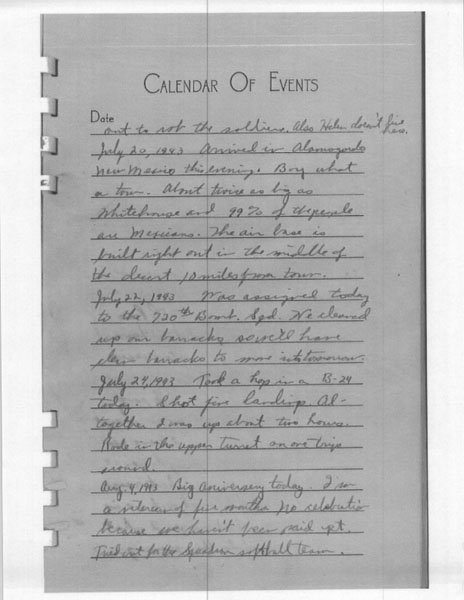 CALENDAR OF EVENTS
Date
out to rot the soldiers. Also Helen doesn't live
here.
July 20, 1943 Arrived in Alamogordo
New Mexico this evening. Boy what
a town. About twice as big as
Whitehouse and 99% of the people
are Mexicans. The air base is
built right out in the middle of
the desert 10 miles from town.
July 22, 1943 Was assigned today
to the 720th Bomb. Sqd. We cleaned
up our barracks so we'll have
clean barracks to move into tomorrow.
July 24, 1943 Took a hop in a B-24
today. Shot five landings. Al-
together I was up about two hours.
Rode in the upper turret on one trip
around.
Aug 4, 1943 Big Aniversery today. I'm
a veteran of five months. No celebration
because we haven't been paid yet.
Tried out for the Squadron softball team.